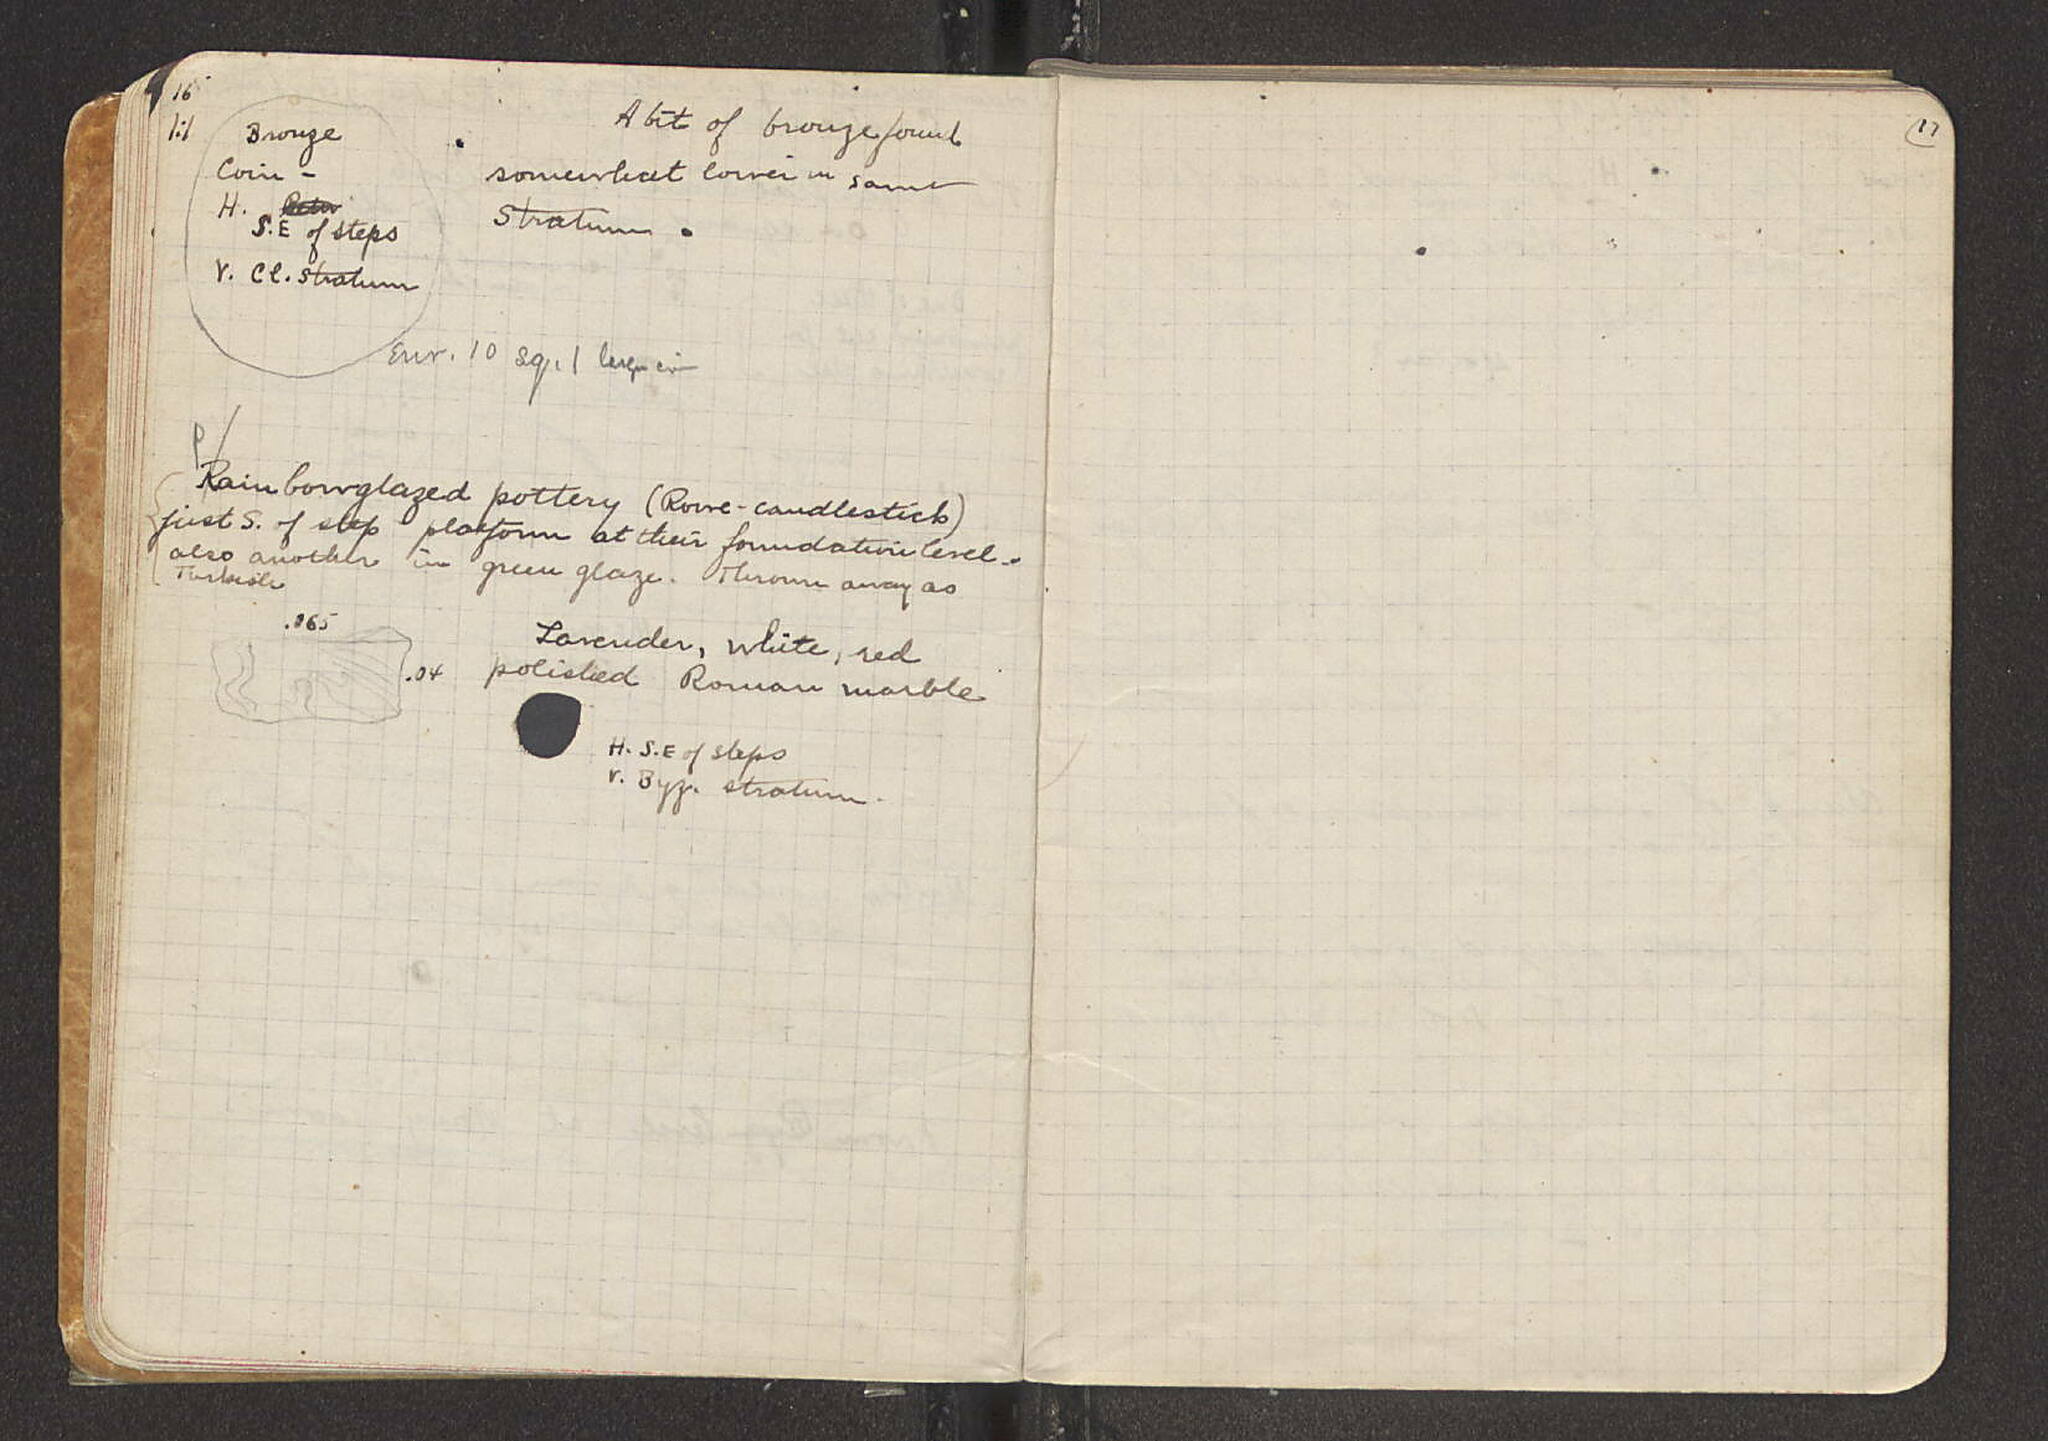 16
1:1
Bronze
Coin -
H.
S.E of steps
V. Cl. Stratum
A bit of bronze found
somewhat lower in same
Stratum.
Env. 10 Sq. 1
P
Rainbow glazed pottery (Rowe-candlestick)
just S. of step platform at their foundation level.
also another in green glaze. Thrown away as
Turkish
.065
.04
Lavender, white, red
polished Roman marble
H. S.E of steps
V. Byz. stratum.
17